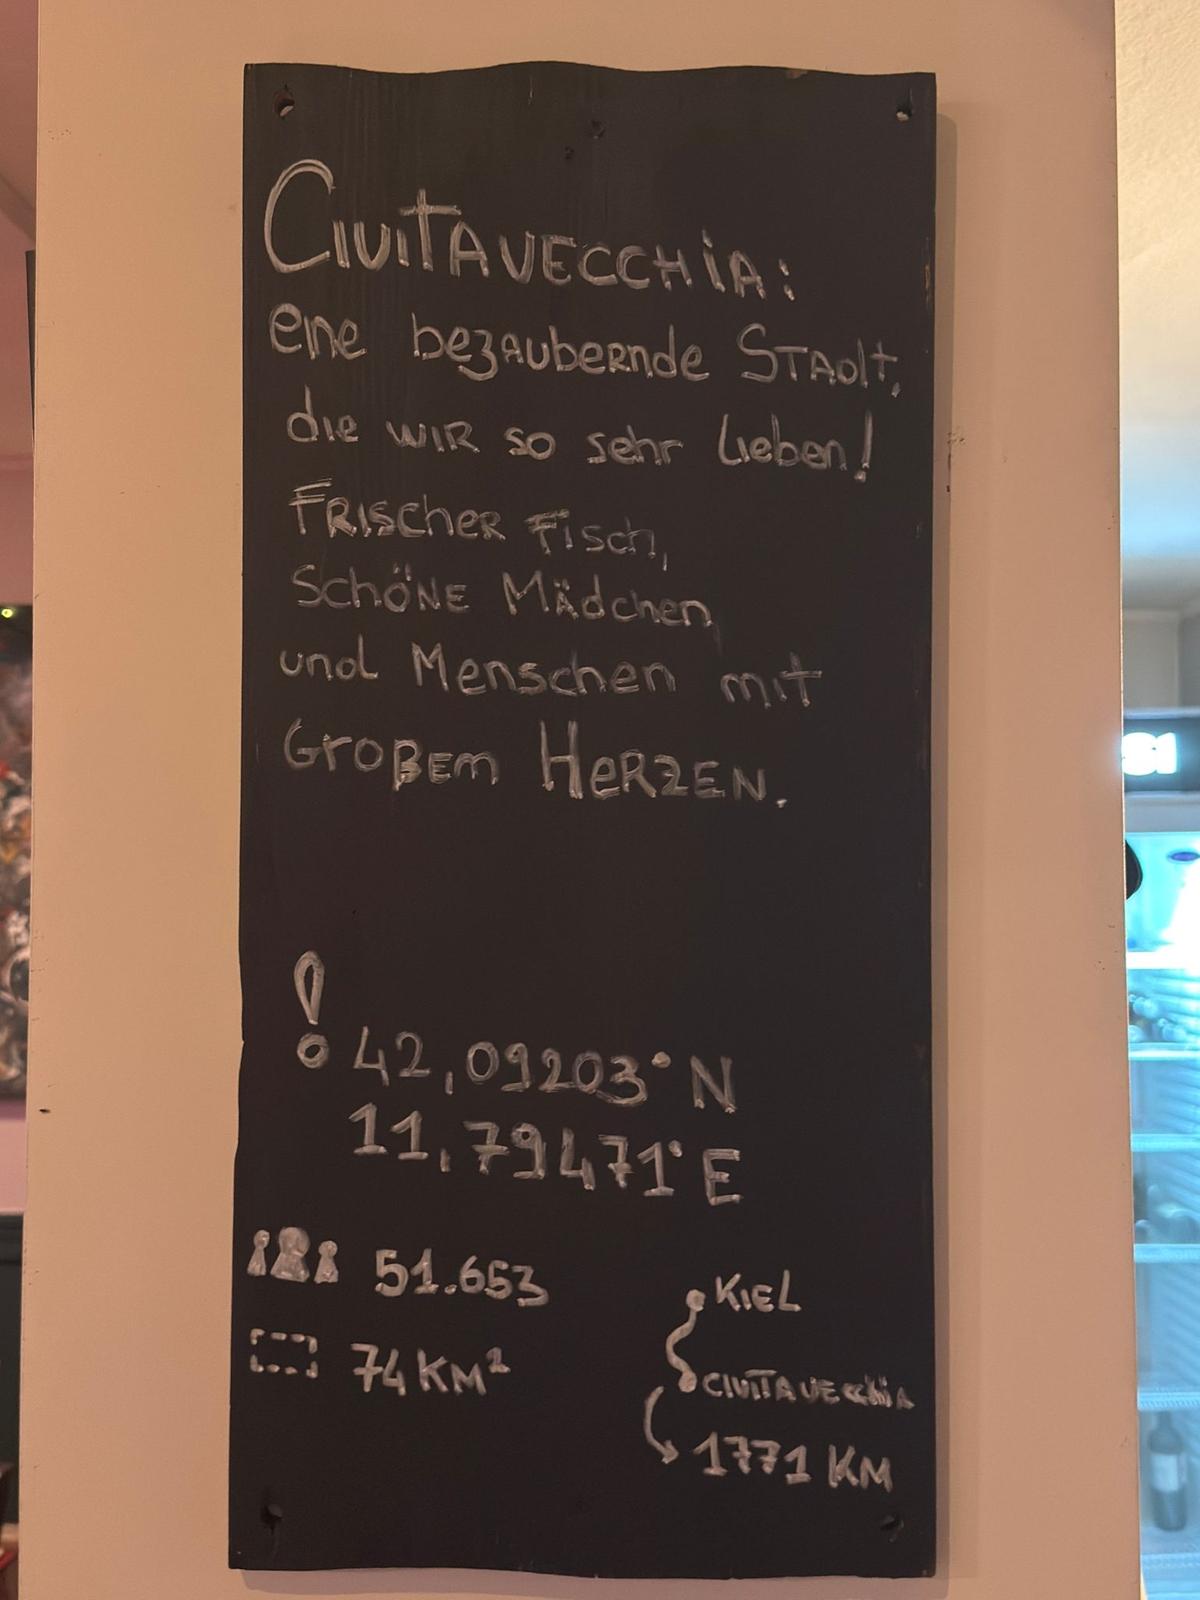 CIVITAVECCHIA:
eine bezaubernde Stadt,
die wir so sehr lieben!
Frischer Fisch,
Schöne Mädchen
und Menschen mit
Großem Herzen.
! 42,09203° N
11,79471° E
51.653
74 KM²
KIEL
CIVITAVECCHIA
1771 KM